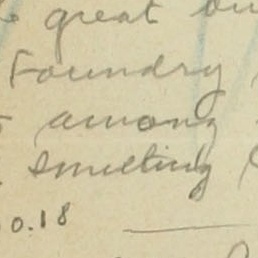 great
Foundry
among
smelting
0.18